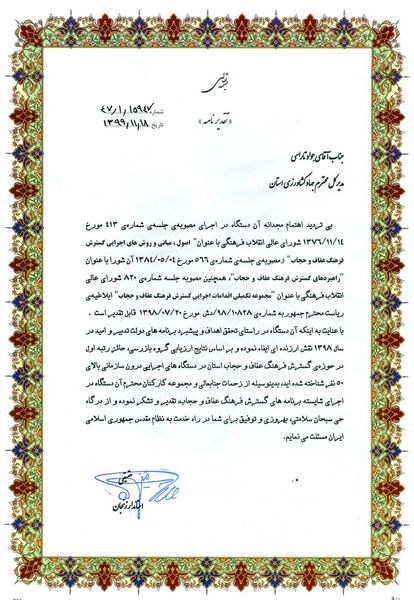 بسمه تعالی
شماره: ۴۷/۱/۱۵۹۴۷
«تقدیرنامه»
تاریخ: ۱۳۹۹/۱۱/۱۸
جناب آقای جولو نارای
مدیر کل محترم جهاد کشاورزی استان
بی تردید اهتمام مجدانه آن دستگاه در اجرای مصوبه‌ی جلسه‌ی شماره‌ی ۴۱۳ مورخ
۱۳۷۶/۱۱/۱۴ شورای عالی انقلاب فرهنگی با عنوان" اصول، مبانی و روش های اجرایی گسترش
فرهنگ عفاف و حجاب" ومصوبه‌ی جلسه‌ی شماره‌ی ۵۶۶ مورخ ۱۳۸۴/۰۵/۰۴ آن شورا با عنوان
"راهبردهای گسترش فرهنگ عفاف و حجاب"، همچنین مصوبه جلسه شماره‌ی ۸۲۰ شورای عالی
انقلاب فرهنگی با عنوان "مجموعه تکمیلی اقدامات اجرایی گسترش فرهنگ عفاف و حجاب" ابلاغیه‌ی
ریاست محترم جمهور به شماره‌ی ۹۸/۱۰۸۲۸/دش مورخ ۱۳۹۸/۰۷/۲۰ قابل تقدیر است .
با عنایت به اینکه آن دستگاه در راستای تحقق اهداف و پیشبرد برنامه های دولت تدبیر و امید در
سال ۱۳۹۸ نقش ارزنده ای ایفاء نموده و بر اساس نتایج ارزیابی گروه بازرسی، حائز رتبه اول
در حوزه‌ی گسترش فرهنگ عفاف و حجاب استان در دستگاه های اجرایی درون سازمانی بالای
۵۰ نفر شناخته شده اید، بدینوسیله از زحمات جنابعالی و مجموعه کارکنان محترم آن دستگاه در
اجرای شایسته برنامه های گسترش فرهنگ عفاف و حجاب، تقدیر و تشکر نموده و از درگاه
حی سبحان سلامتی، بهروزی و توفیق برای شما در راه خدمت به نظام مقدس جمهوری اسلامی
ایران مسئلت می نمایم.
حقیقی
استاندار زنجان